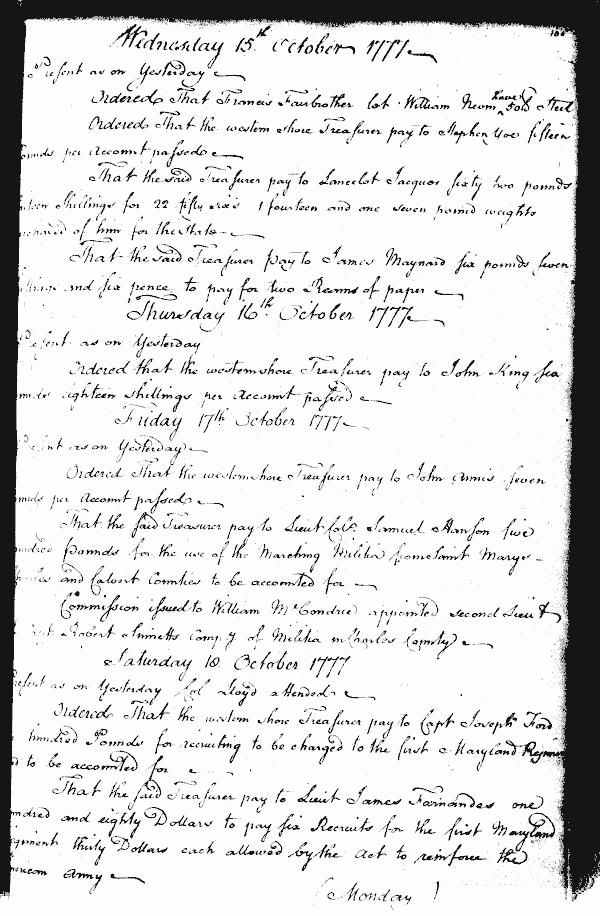 Wednesday 15th October 1777
Present as on Yesterday
Ordered That Francis Fairbrother let William have 50lb Steel
Ordered That the western shore Treasurer pay to Stephen fifteen
ounds per account passed
That the said Treasurer pay to Lancelot Jacques sixty two pounds
teen shillings for 22 fifty six's 1 fourteen and one seven pound weights
rchased of him for the State
That the said Treasurer pay to James Maynard six pounds seven
llings and six pence to pay for two Reams of paper
Thursday 16th October 1777
Present as on Yesterday
Ordered that the western shore Treasurer pay to John King six
unds eighteen shillings per account passed
Friday 17th October 1777
Present as on Yesterday
Ordered That the western shore Treasurer pay to John Annis seven
ounds per account passed
That the said Treasurer pay to Lieut Colo. Samuel Hanson five
undred Pounds for the use of the Marching Militia from Saint Marys
harles and Calvert Counties to be accounted for
Commission issued to William appointed second Lieut
Capt Robert Compy of Militia in Charles County
Saturday 18 October 1777
resent as on Yesterday Col Lloyd attended
Ordered That the western shore Treasurer pay to Capt Joseph Ford
hundred Pounds for recruiting to be charged to the first Maryland Regiment
d to be accounted for
That the said Treasurer pay to Lieut James Farnandes one
undred and eighty Dollars to pay six Recruits for the first Maryland
egiment thirty Dollars each allowed by the Act to reinforce the
merican Army
(Monday)